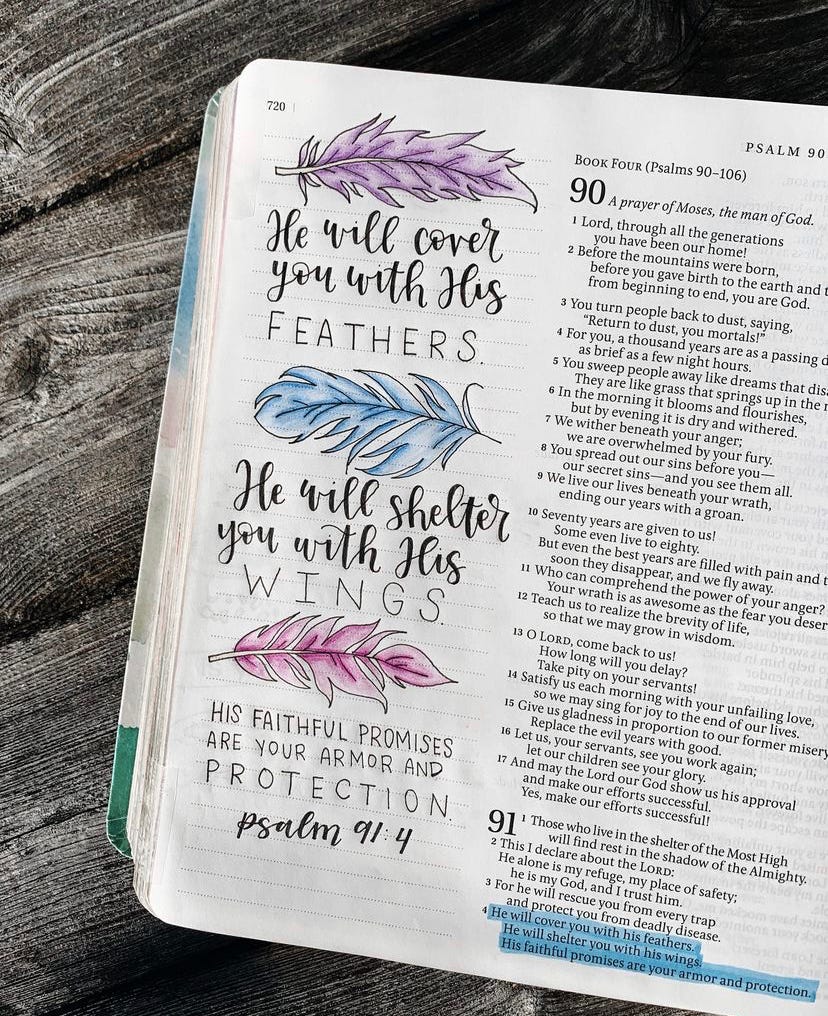 720
He will cover
you with His
FEATHERS.
He will shelter
you with His
WINGS.
HIS FAITHFUL PROMISES
ARE YOUR ARMOR AND
PROTECTION.
psalm 91:4
PSALM 90
BOOK FOUR (Psalms 90–106)
90 A prayer of Moses, the man of God.
1 Lord, through all the generations
you have been our home!
2 Before the mountains were born,
before you gave birth to the earth and
from beginning to end, you are God.
3 You turn people back to dust, saying,
“Return to dust, you mortals!”
4 For you, a thousand years are as a passing
as brief as a few night hours.
5 You sweep people away like dreams that
They are like grass that springs up in the
6 In the morning it blooms and flourishes,
but by evening it is dry and withered.
7 We wither beneath your anger;
we are overwhelmed by your fury.
8 You spread out our sins before you—
our secret sins—and you see them all.
9 We live our lives beneath your wrath,
ending our years with a groan.
10 Seventy years are given to us!
Some even live to eighty.
But even the best years are filled with pain and
soon they disappear, and we fly away.
11 Who can comprehend the power of your anger?
Your wrath is as awesome as the fear you
12 Teach us to realize the brevity of life,
so that we may grow in wisdom.
13 O LORD, come back to us!
How long will you delay?
Take pity on your servants!
14 Satisfy us each morning with your unfailing love,
so we may sing for joy to the end of our lives.
15 Give us gladness in proportion to our former misery
Replace the evil years with good.
16 Let us, your servants, see you work again;
let our children see your glory.
17 And may the Lord our God show us his approval
and make our efforts successful.
Yes, make our efforts successful!
91 1 Those who live in the shelter of the Most High
will find rest in the shadow of the Almighty.
2 This I declare about the LORD:
He alone is my refuge, my place of safety;
he is my God, and I trust him.
3 For he will rescue you from every trap
and protect you from deadly disease.
4 He will cover you with his feathers.
He will shelter you with his wings.
His faithful promises are your armor and protection.